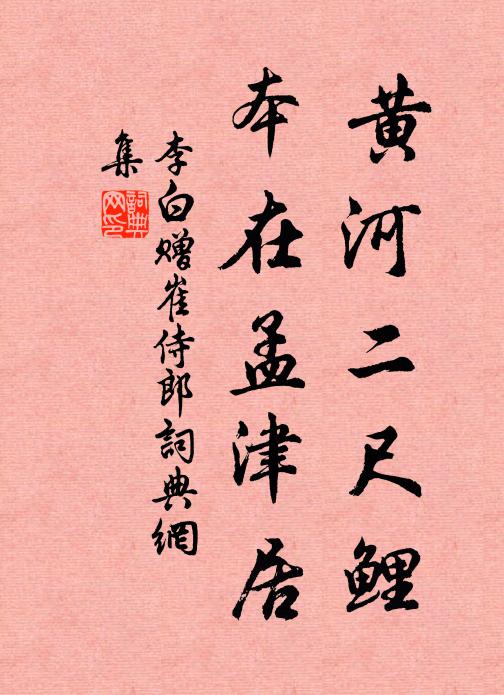 黄河二尺鲤
本在孟津居
李白赠崔侍郎詞典網
集
詞典網印